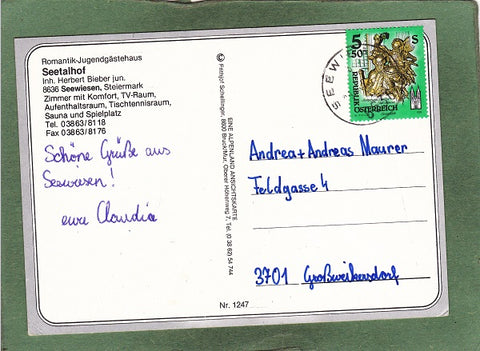 Romantik-Jugendgästehaus
Seetalhof
Inh. Herbert Bieber jun.
8636 Seewiesen, Steiermark
Zimmer mit Komfort, TV-Raum,
Aufenthaltsraum, Tischtennisraum,
Sauna und Spielplatz
Tel. 03863/8118
Fax 03863/8176
Schöne Grüße aus
Seewiesen!
eure Claudia
EINE ALPENLAND ANSICHTSKARTE
© Frithjof Schellinger, 8600 Bruck/Mur, Oberer Höhenweg 7, Tel. (0 38 62) 54 7 44
Nr. 1247
SEEW
5 50 S
REPUBLIK
ÖSTERREICH
Andrea + Andreas Maurer
Feldgasse 4
3701 Großweikersdorf